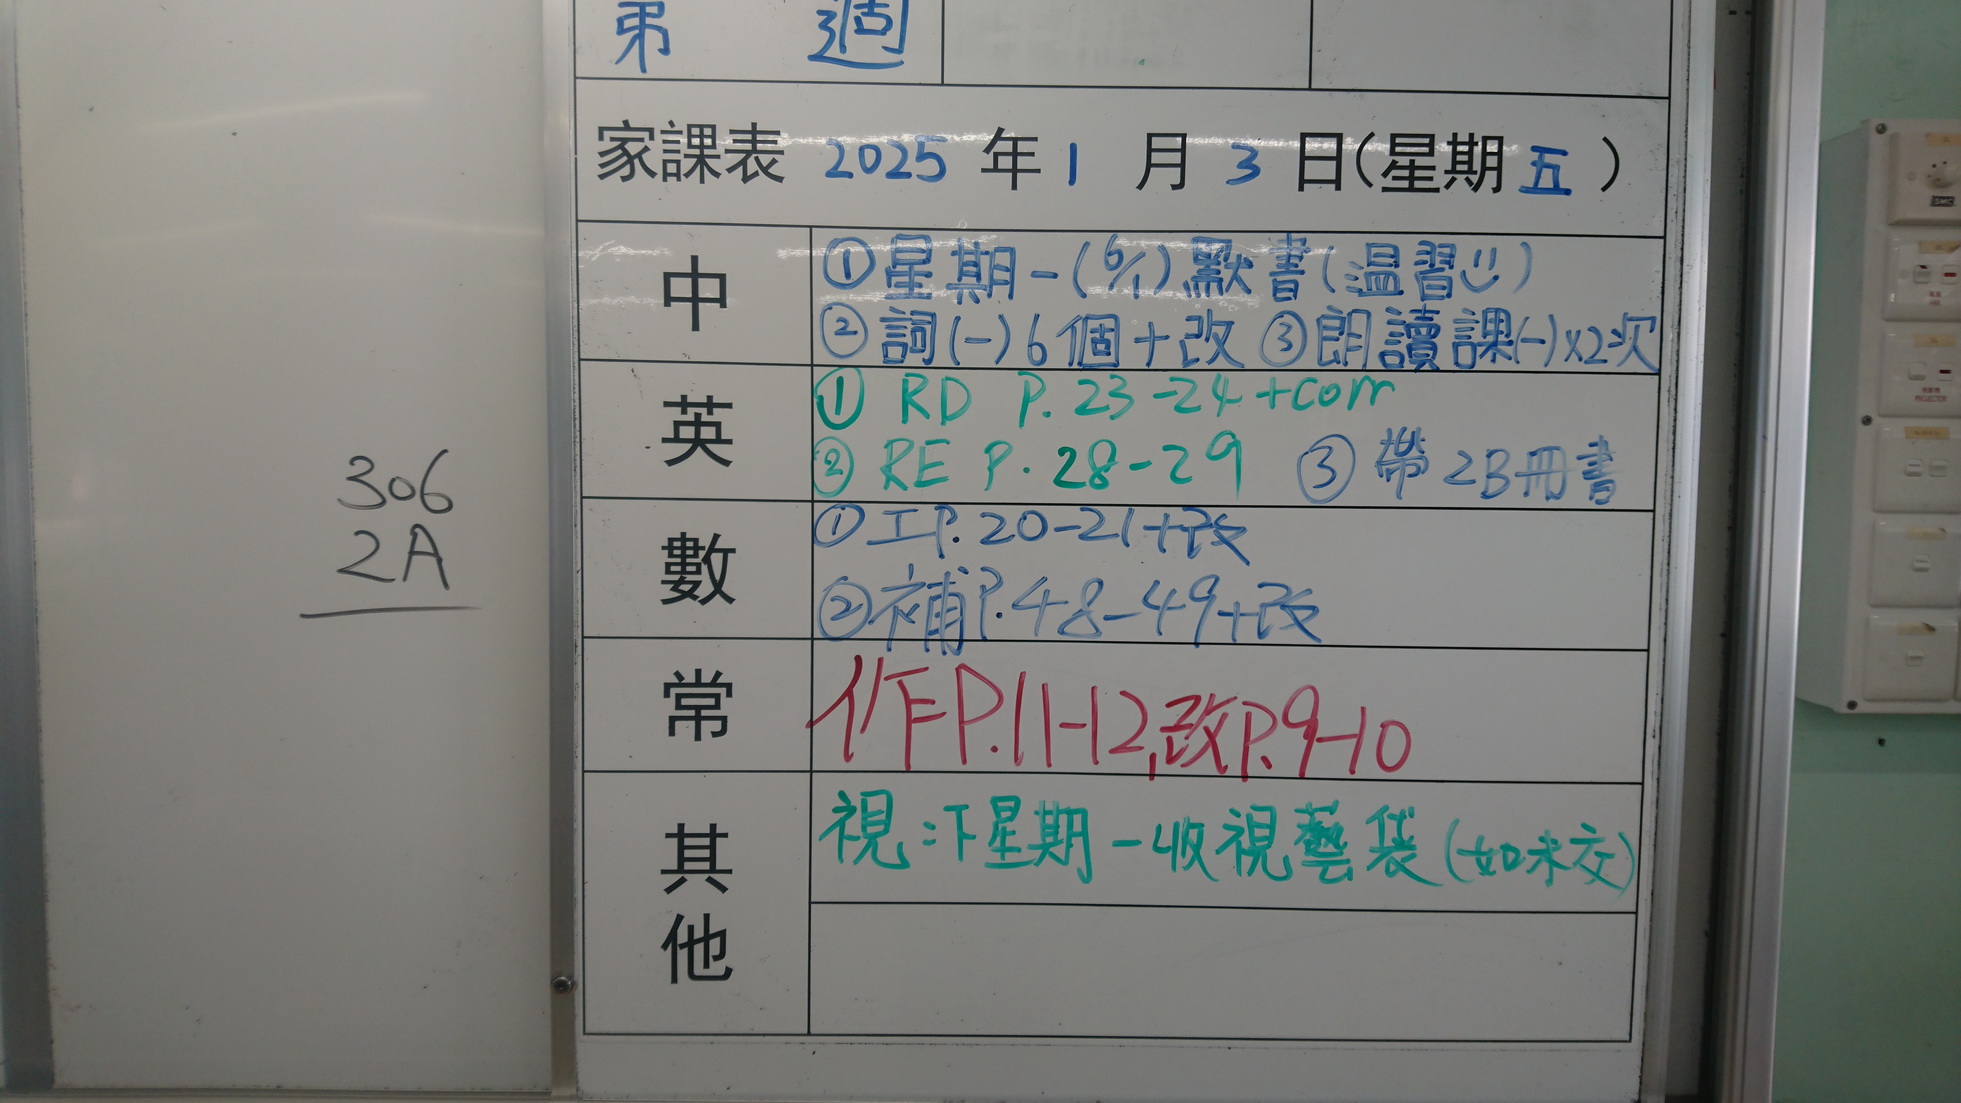 第 週
家課表 2025 年 1 月 3 日(星期 五 )
中
①星期一(6/1)默書(温習)
②詞(一)6個+改 ③朗讀課(一)x2次
英
① RD P.23-24+corr
② RE P.28-29 ③ 帶2B冊書
數
①工P.20-21+改
②補P.48-49+改
常
作P.11-12,改P.9-10
其他
視:下星期一收視藝袋(如未交)
306
2A
PROJECTOR